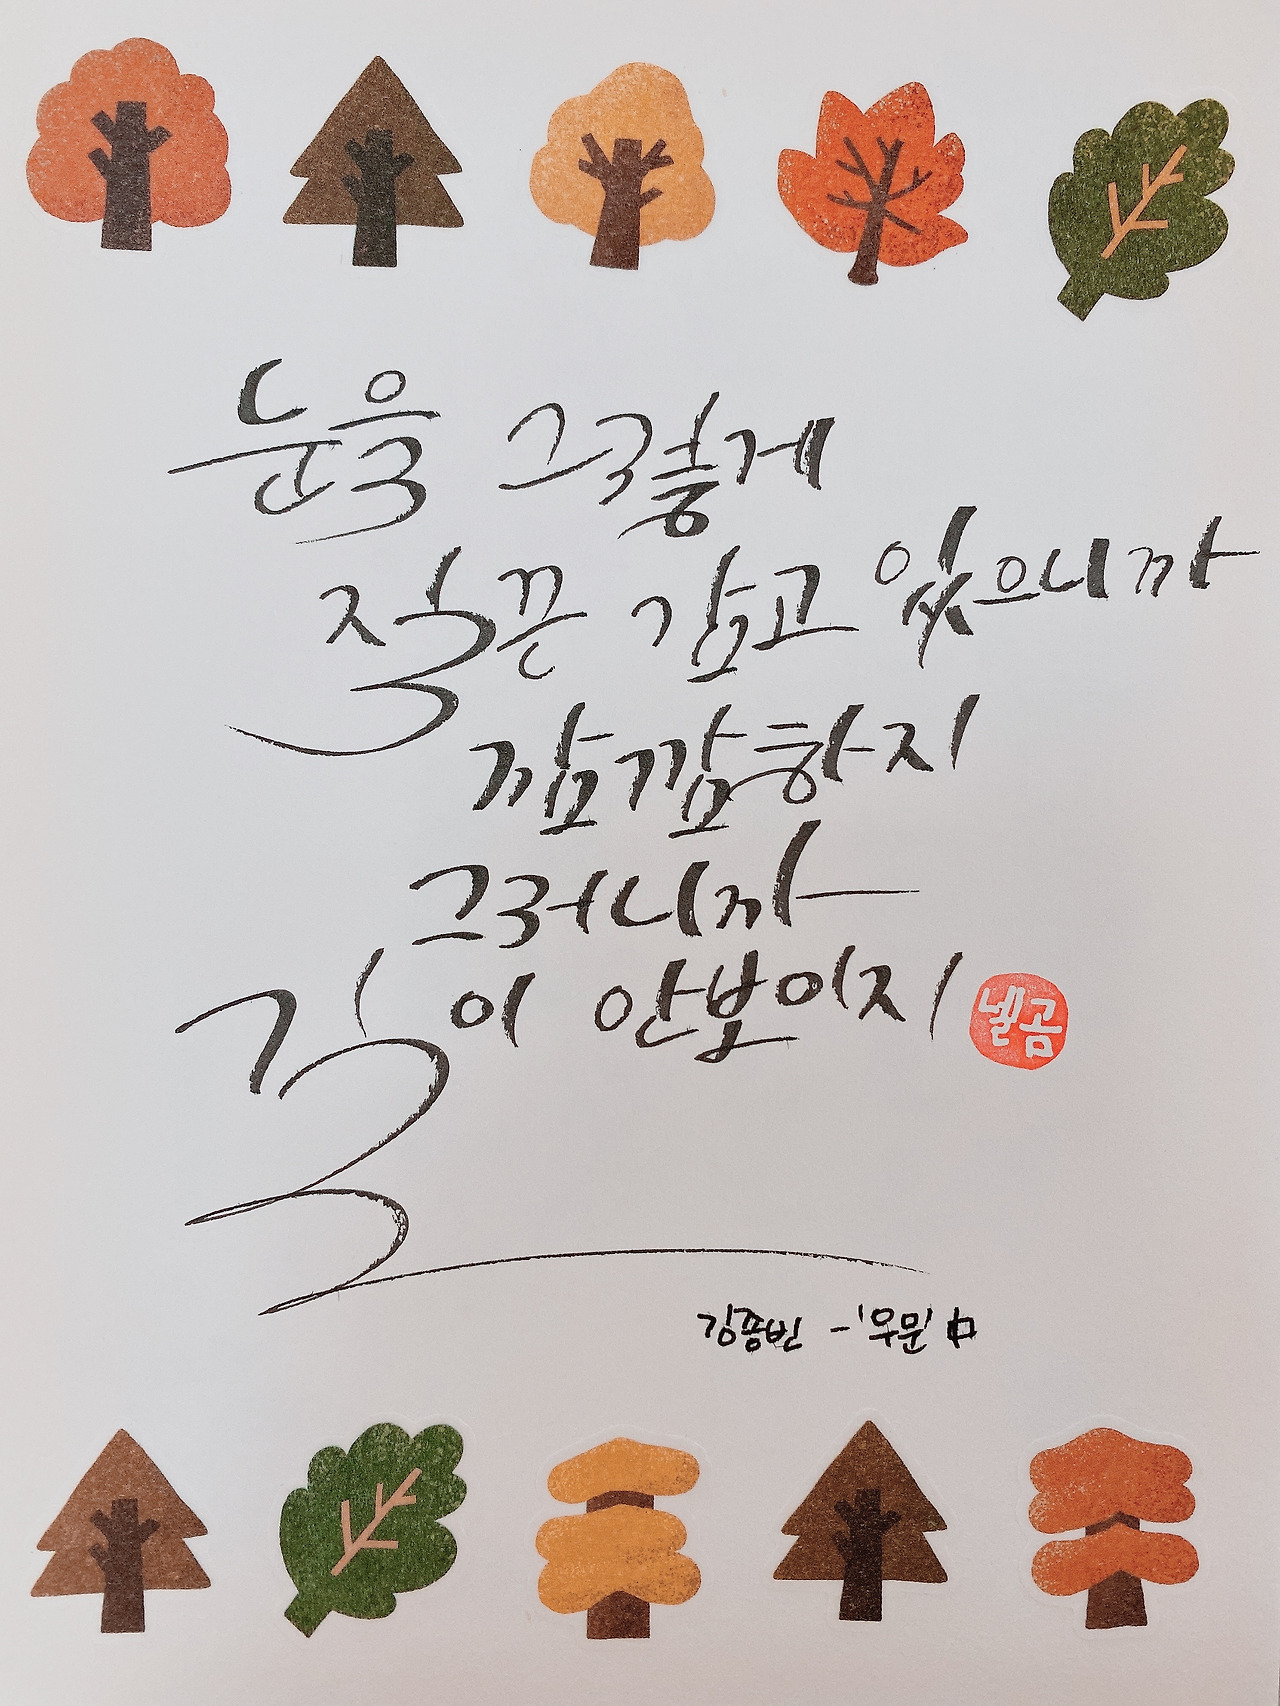 눈을 그렇게
질끈 감고 있으니까
깜깜하지
그러니까
길이 안보이지
넬곰
김종빈 - '우문' 中